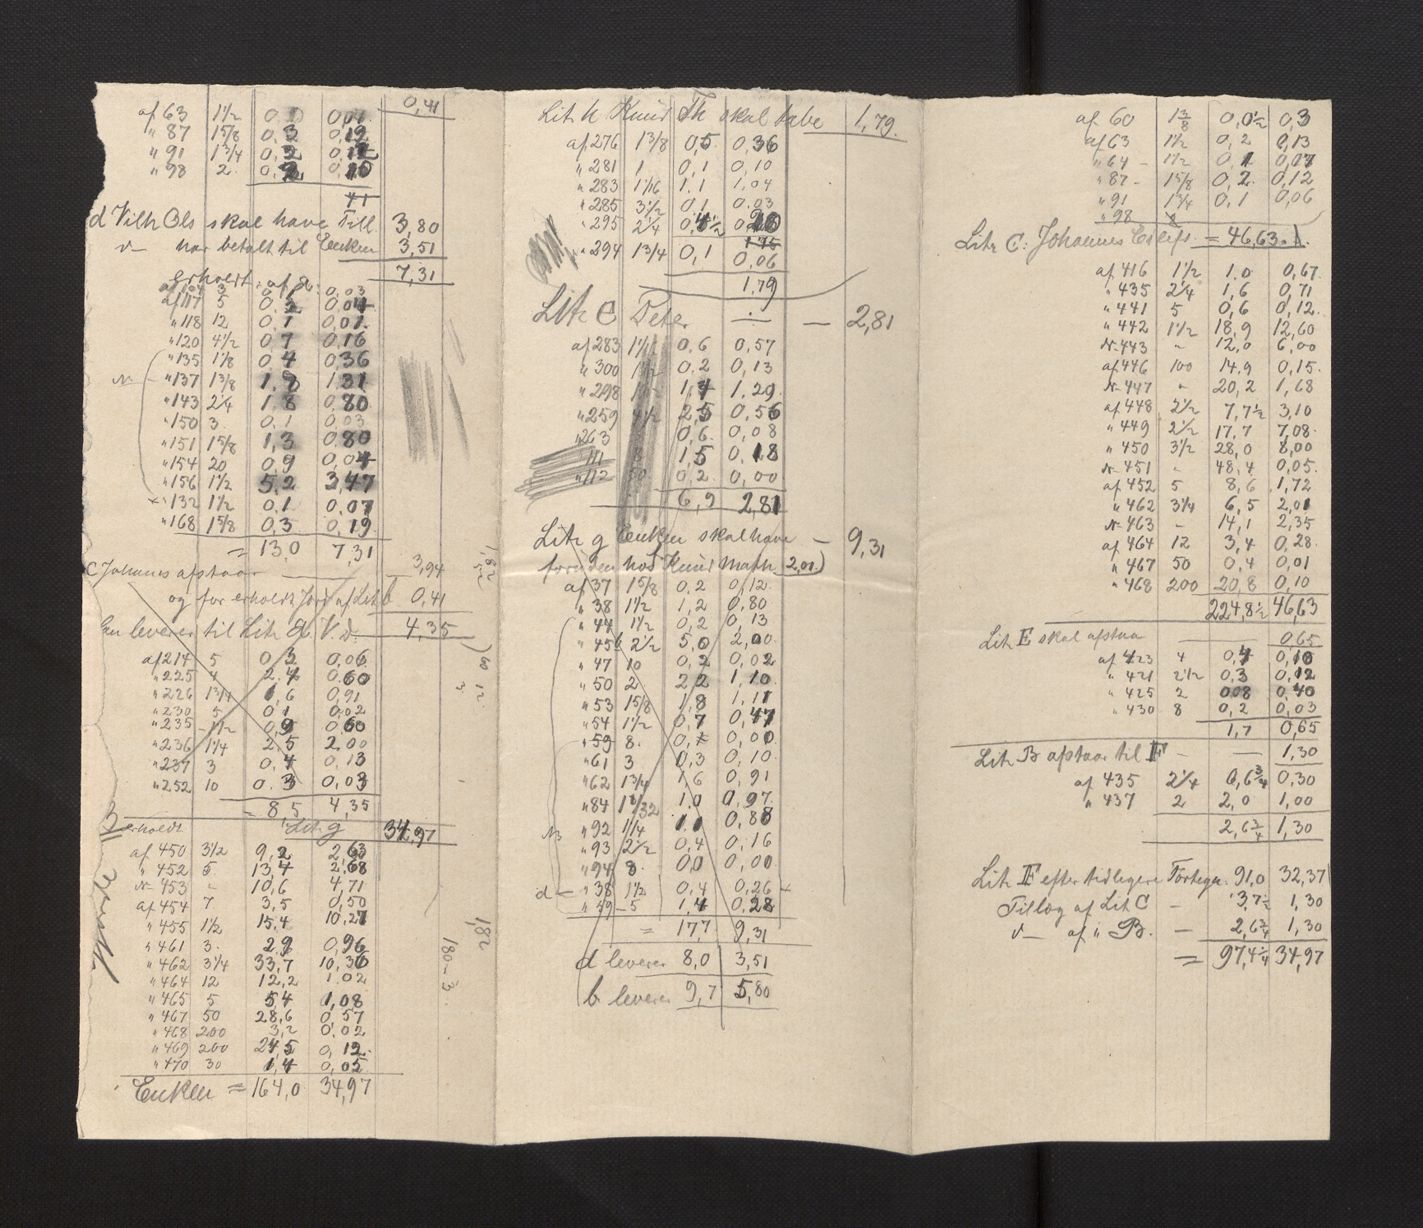 0,41
af 63 1½ 0,1 0,01
" 87 15/8 0,3 0,19
" 91 1¾ 0,2 0,12
" 98 2 0,2 0,10
41
d Vilh Ols skal have Till 3,80
d— har betalt til Enken 3,51
7,31
erholdt af g:
af 104 3 0,03
af 117 5 0,2 0,04
" 118 12 0,1 0,01
" 120 4½ 0,7 0,16
" 135 1 1/8 0,4 0,36
N— " 137 1 3/8 1,8 1,31
" 143 2¼ 1,8 0,80
" 150 3 0,1 0,03
" 151 15/8 1,3 0,80
" 154 20 0,9 0,04
" 156 1½ 5,2 3,47
" 132 1½ 0,1 0,07
" 168 15/8 0,3 0,19
= 13,0 7,31
C Johannes afstaar 3,94
og for erholdt Jord af Lit b 0,41
leverer til Lit 4,35
af 214 5 0,3 0,06
" 225 4 2,4 0,60
" 226 1¾ 1,6 0,91
" 230 5 0,1 0,02
" 235 1½ 0,9 0,60
" 236 1¼ 2,5 2,00
" 237 3 0,4 0,13
" 252 10 0,3 0,03
= 8,5 4,35
erholdt Lit g 34,97
af 450 3½ 9,2 2,63
" 452 5 13,4 2,68
N 453 - 10,6 4,71
af 454 7 3,5 0,50
" 455 1½ 15,4 10,27
" 461 3 2,9 0,96
" 462 3¼ 33,7 10,36
" 464 12 12,2 1,02
" 465 5 5,4 1,08
" 467 50 28,6 0,57
" 468 200 3,2 0,02
" 469 200 24,5 0,12
" 470 30 1,4 0,05
Enken = 164,0 34,97
1,82
180-3
Lit h Knud Th skal have 1,79
af 276 1 3/8 0,5 0,36
" 281 1 0,1 0,10
" 283 1 1/16 1,1 1,04
" 285 3½ 0,1 0,03
" 295 2¼ 0,4½ 0,20
" 294 1¾ 0,1 0,06
1,79
Lit C Peter — 2,81
af 283 1 1/16 0,6 0,57
" 300 0,2 0,13
" 298 1,4 1,29
" 259 4½ 2,5 0,56
" 263 0,6 0,08
111 8 1,5 0,18
" 112 50 0,2 0,00
6,9 2,81
Lit g Enken skal have — 9,31
foruden hos Knud Math 2,01)
af 37 15/8 0,2 0,12
" 38 1½ 1,2 0,80
" 44 1½ 0,2 0,13
" 456 2½ 5,0 2,00
" 47 10 0,2 0,02
" 50 2 2,2 1,10
" 53 15/8 1,8 1,11
" 54 1½ 0,7 0,47
" 59 8 0,1 0,00
" 61 3 0,3 0,10
" 62 1¾ 1,6 0,91
" 84 1 1/32 1,0 0,97
" 92 1¼ 1,1 0,88
" 93 2½ 0,4 0,16
" 94 8 0,0 0,00
d— " 38 1½ 0,4 0,26
" 49 - 5 1,4 0,28
= 17,7 9,31
d leverer 8,0 3,51
b leverer 9,7 5,80
af 60 1 3/8 0,0½ 0,3
af 63 1½ 0,2 0,13
" 64 - 1½ 0,1 0,07
" 87 - 15/8 0,2 0,12
" 91 1¾ 0,1 0,06
" 98 2
Lit C: Johannes = 46,63
af 416 1½ 1,0 0,67
" 435 2¼ 1,6 0,71
" 441 5 0,6 0,12
" 442 1½ 18,9 12,60
N 443 - 12,0 6,00
af 446 100 14,9 0,15
N 447 - 20,2 1,68
af 448 2½ 7,7½ 3,10
" 449 2½ 17,7 7,08
" 450 3½ 28,0 8,00
N 451 - 48,4 0,05
af 452 5 8,6 1,72
" 462 3¼ 6,5 2,01
N 463 - 14,1 2,35
af 464 12 3,4 0,28
" 467 50 0,4 0,01
" 468 200 20,8 0,10
224,8½ 46,63
Lit E skal afstaa — 0,65
af 423 4 0,4 0,10
" 421 2½ 0,3 0,12
" 425 2 0,8 0,40
" 430 8 0,2 0,03
1,7 0,65
Lit B afstaar til F — 1,30
af 435 2¼ 0,6¾ 0,30
" 437 2 2,0 1,00
2,6¾ 1,30
Lit F efter tidligere Fortegn. 91,0 32,37
Tillæg af Lit C — 3,7½ 1,30
d— af " B. — 2,6¾ 1,30
= 97,4¼ 34,97